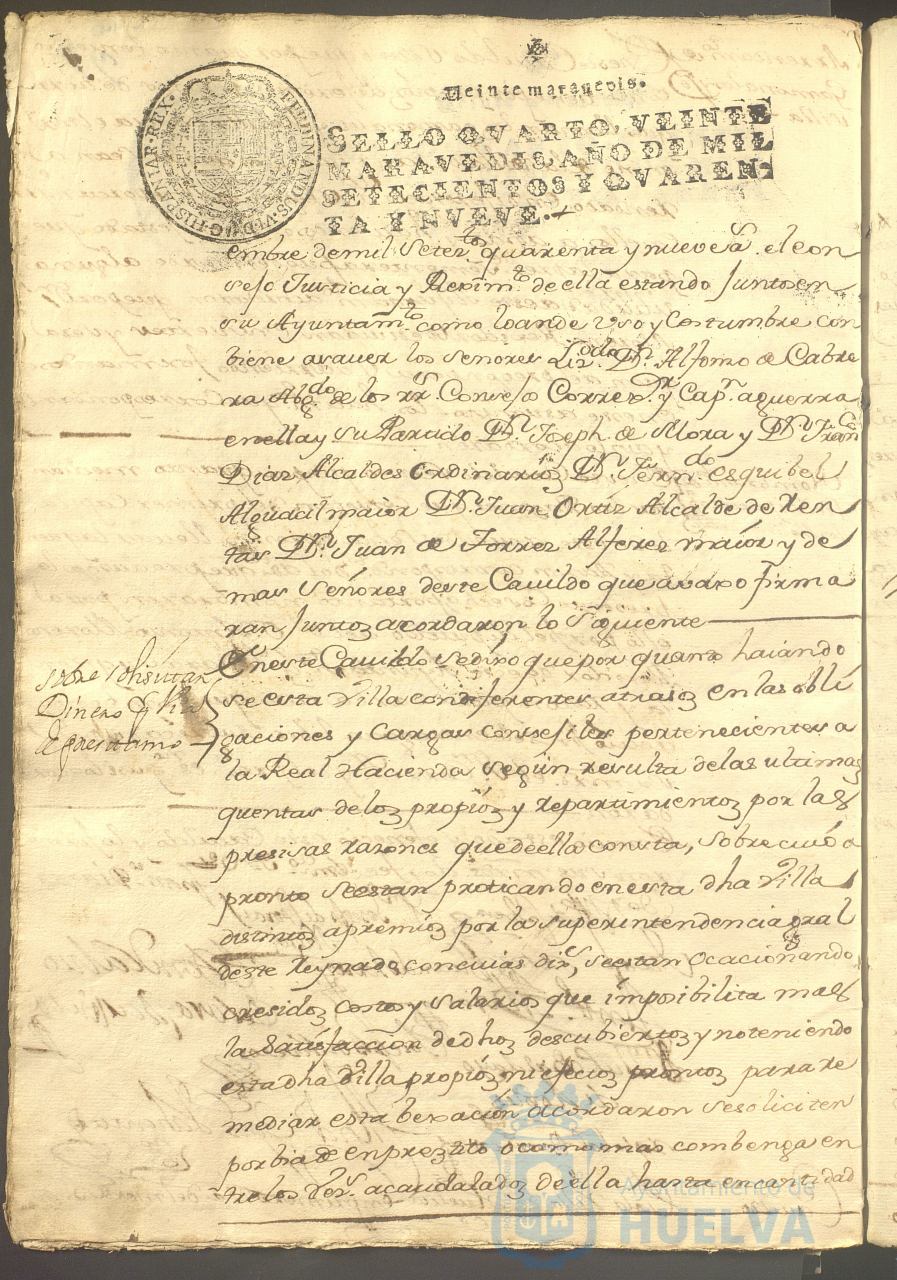 Veinte maravedis.
SELLO QVARTO, VEINTE
MARAVEDIS, AÑO DE MIL
SETECIENTOS Y QVAREN-
TA Y NVEVE.
FERDINANDUS VI D G HISPANIAR REX
embre de mil Setez.tos quarenta y nueve a.s el con
sejo Justicia y Rexim.to de ella estando Juntos en
su Ayuntam.to como lo an de uso y Costumbre con
biene a saver los señores Liz.do D.n Alfonso de Cabre
ra Abg.do de los r.s Consejo Correx.or y Cap.n a guerra
en ella y su Partido D.n Joseph de Mora y D.n Fran.co
Diaz Alcaldes Ordinarios D.n Fern.do esquibel
Alguacil maior D.n Juan Ortiz Alcalde de Ren
tas D.n Juan de Torres Alferes maior y de
mas Señores deste Cavildo que avaxo firma
ran Juntos acordaron lo Siguiente
En este Cavildo se dixo que por quanto haiando
se esta Villa con diferentes atrasos en las obli
gaciones y Cargas Consejiles pertenecientes a
la Real Hacienda según resulta de las ultimas
quentas de los propios y repartimientos por las
presisas razones que de ella consta, sobre cuio a
pronto se estan proticando en esta dha Villa
distintos apremios por la superintendencia gral
deste Reynado con cuias dix.s, se estan ocacionando
cresidos costos y salarios que imposibilita mas
la Satisfaccion de dhos descubiertos y no teniendo
esta dha Villa propios ni efectos prontos para re
mediar esta bexacion acordaron se soliciten
por bia de enprestito o como mas combenga en
tre los Vez.s acaudalados de ella hasta en cantidad
sobre solisitar
Dinero
de prestamo
Ayuntamiento de
HUELVA